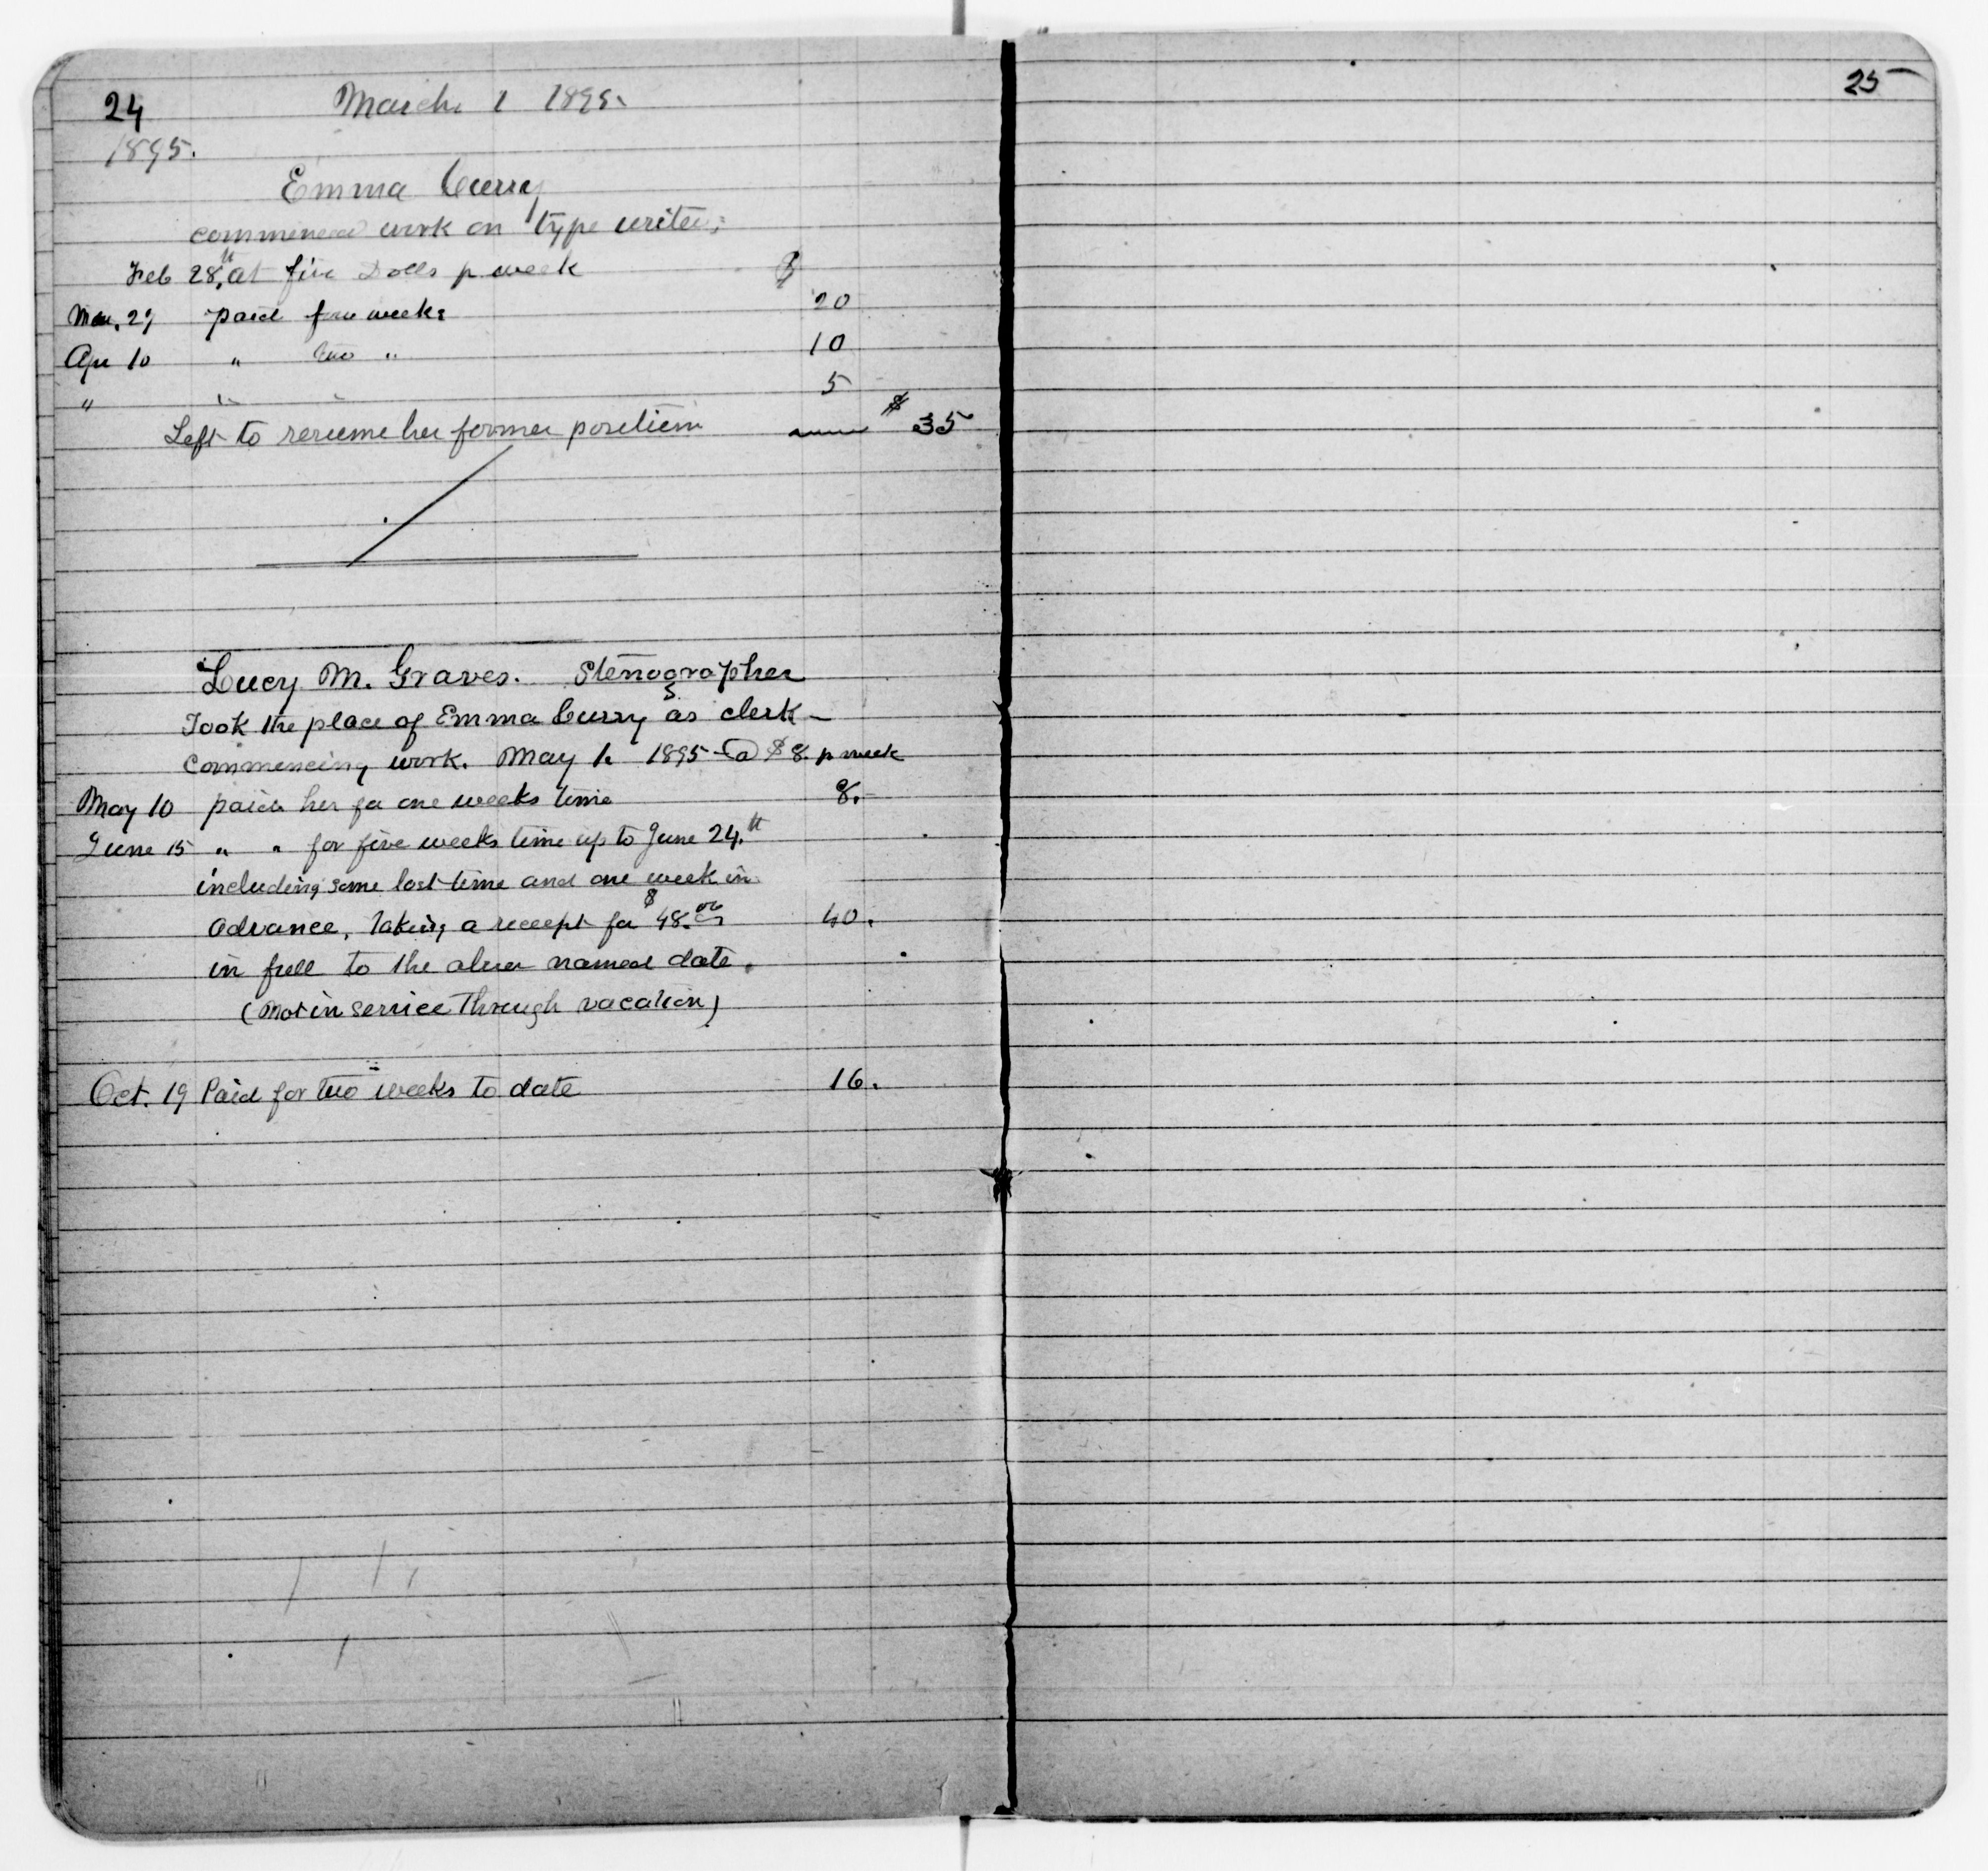 24
March 1 1895.
1895.
Emma Curry
commenced work on type writer;
Feb 28.th at five Dolls p week $
Mar. 29 paid four weeks 20
Apr 10 " two " 10
" " " 5
Left to resume her former position $ 35
Lucy M. Graves. Stenographer
Took the place of Emma Curry as clerk —
Commencing work. May 1. 1895 - @ $8. p week
May 10 paid her for one weeks time 8.
June 15 " " for five weeks time up to June 24.th
including some lost time and one week in
advance, taking a receipt for $48.00 40.
in full to the above named date.
(Not in service through vacation)
Oct. 19 Paid for two weeks to date 16.
25